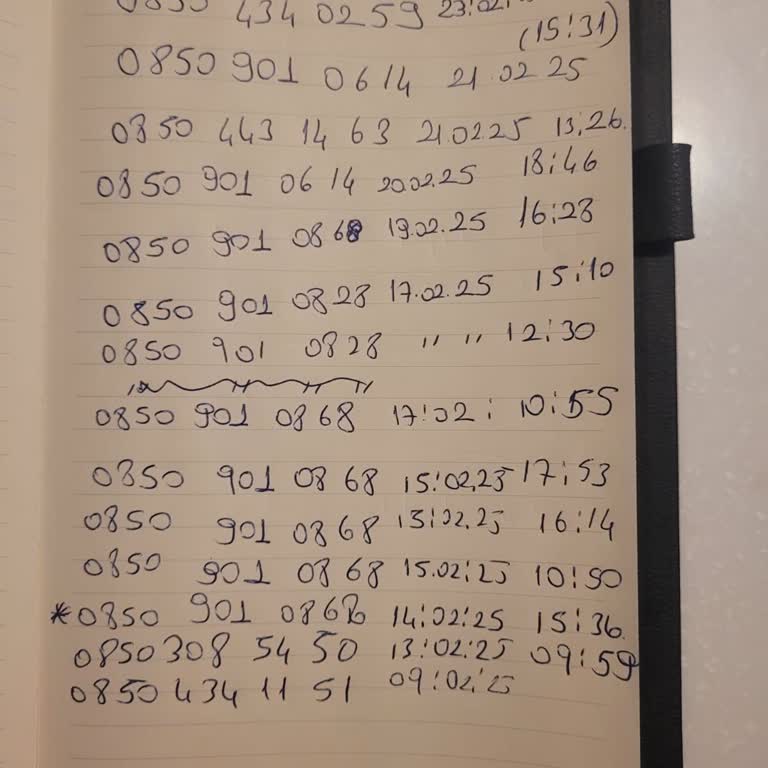 0850 434 0259 23:02.
(15:31)
0850 901 0614 21 02 25
0850 443 14 63 21.02.25 13,26.
0850 901 06 14 20.02.25 18:46
0850 901 0868 19.02.25 16:28
0850 901 0828 17.02.25 15:10
0850 901 0828 " " 12:30
0850 901 08 68 17:02: 10:55
0850 901 08 68 15:02.25 17:53
0850 901 08 68 15:02.25 16:14
0850 901 08 68 15.02:25 10:50
*0850 901 0868 14:02:25 15:36.
0850 308 54 50 13:02:25 09:59
0850 434 11 51 09:02:25